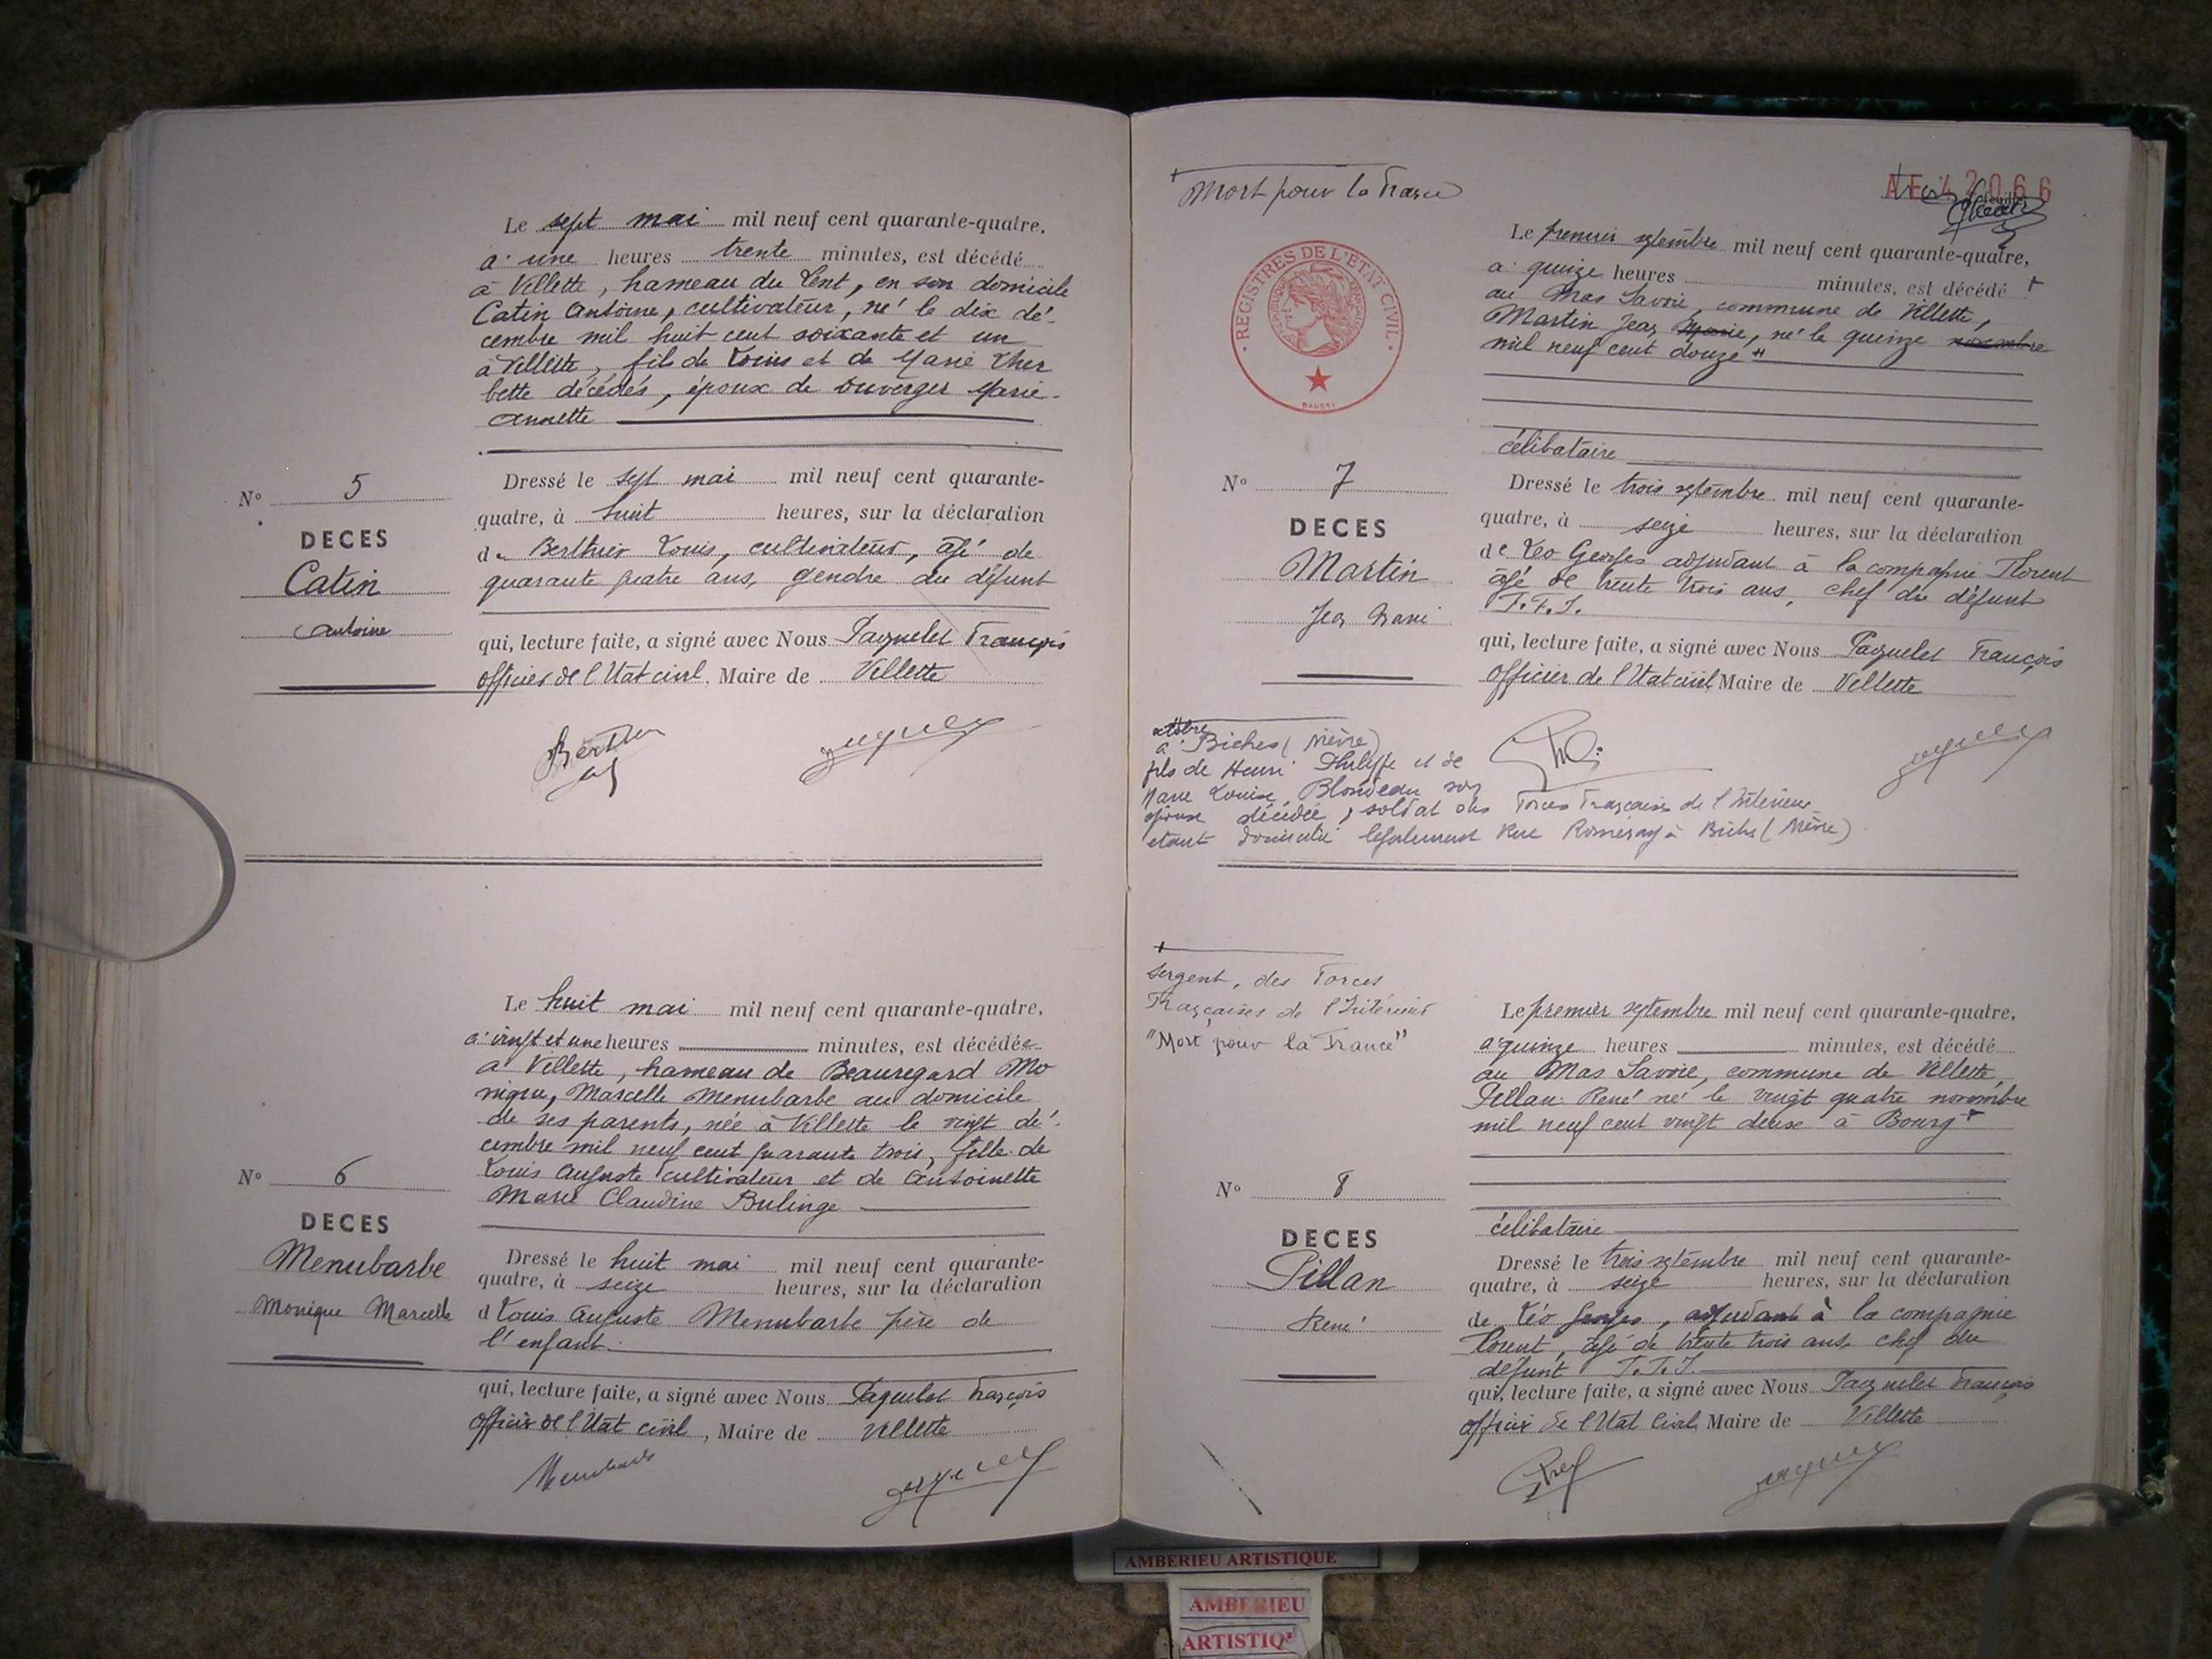 Le sept mai mil neuf cent quarante-quatre.
à une heures trente minutes, est décédé
à Villette, hameau du Lent, en son domicile
Catin Antoine, cultivateur, né le dix dé-
cembre mil huit cent soixante et un
à Villette, fils de Louis et de Marie Cher
bette décédés, époux de Duverger Marie-
Annette
N° 5
DECES
Catin
Antoine
Dressé le sept mai mil neuf cent quarante-
quatre, à huit heures, sur la déclaration
de Berthier Louis, cultivateur, âgé de
quarante quatre ans, gendre du défunt
qui, lecture faite, a signé avec Nous Paquelet François
officier de l'Etat civil, Maire de Villette
Le huit mai mil neuf cent quarante-quatre,
à vingt et une heures minutes, est décédée
à Villette, hameau de Beauregard Mo
nique, Marcelle Menubarbe au domicile
de ses parents, née à Villette le vingt dé-
cembre mil neuf cent quarante trois, fille de
Louis Auguste cultivateur et de Antoinette
Marie Claudine Bulinge
N° 6
DECES
Menubarbe
Monique Marcelle
Dressé le huit mai mil neuf cent quarante-
quatre, à seize heures, sur la déclaration
d Louis Auguste Menubarbe père de
l'enfant.
qui, lecture faite, a signé avec Nous Paquelet François
officier de l'Etat civil, Maire de Villette
+
Mort pour la France
AE 42066
REGISTRES DE L'ETAT CIVIL
Le premier septembre mil neuf cent quarante-quatre,
à quinze heures minutes, est décédé +
au Mas Savoie, commune de Villette,
Martin Jean Marie, né le quinze novembre
mil neuf cent douze #
célibataire
N° 7
DECES
Martin
Jean Marie
Dressé le trois septembre mil neuf cent quarante-
quatre, à seize heures, sur la déclaration
de Léo Georges adjudant à la compagnie Florent
âgé de trente trois ans, chef du défunt
F.F.I.
qui, lecture faite, a signé avec Nous Paquelet François
officier de l'Etat civil Maire de Villette
octobre
à Biches (Nièvre)
fils de Henri Philippe et de
Marie Louise Blondeau son
épouse décédée, soldat des Forces Françaises de l'Intérieur
étant domicilié légalement Rue à Biches (Nièvre)
+
Sergent, des Forces
Françaises de l'Intérieur
"Mort pour la France"
Le premier septembre mil neuf cent quarante-quatre,
à quinze heures minutes, est décédé
au Mas Savoie, commune de Villette,
Pillan René né le vingt quatre novembre
mil neuf cent vingt deuse à Bourg +
célibataire
N° 8
DECES
Pillan
René
Dressé le trois septembre mil neuf cent quarante-
quatre, à seize heures, sur la déclaration
de Léo Georges, adjudant à la compagnie
Florent, âgé de trente trois ans, chef du
défunt F.F.I.
qui, lecture faite, a signé avec Nous Paquelet François
officier de l'Etat Civil Maire de Villette
AMBERIEU ARTISTIQUE
AMBERIEU
ARTISTIQ